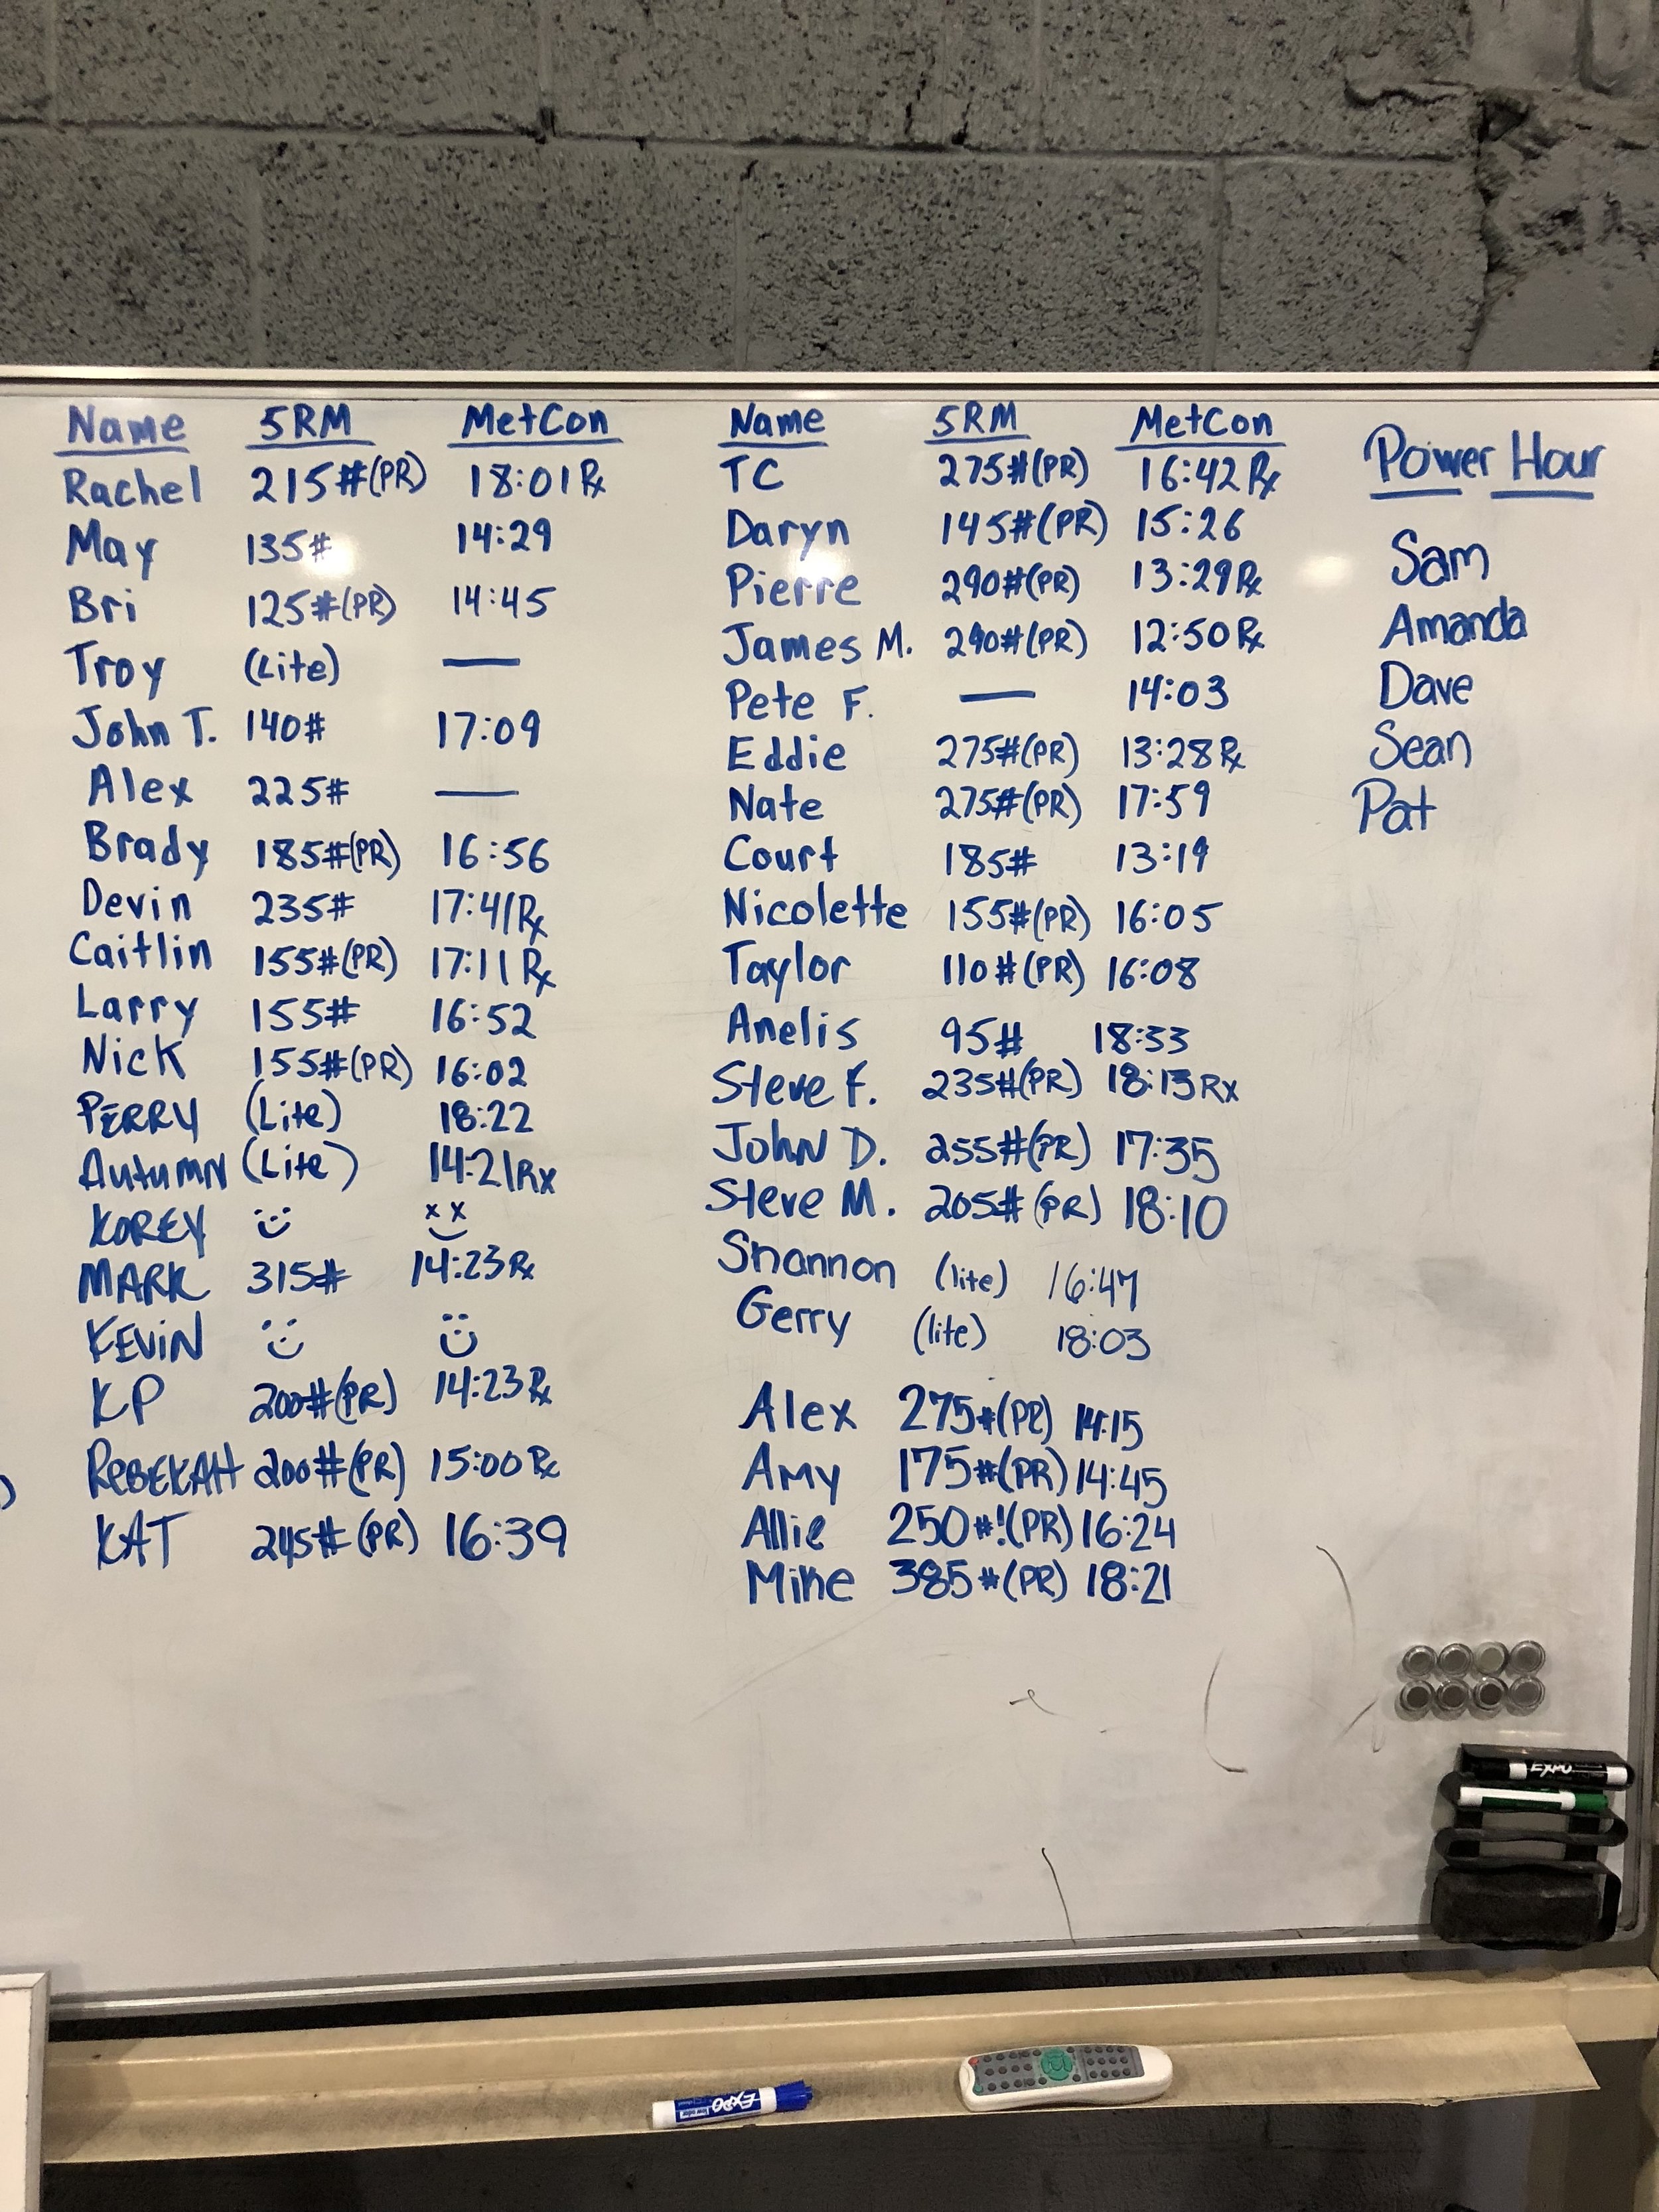 Name 5RM MetCon
Rachel 215#(PR) 18:01Rx
May 135# 14:29
Bri 125#(PR) 14:45
Troy (Lite) —
John T. 140# 17:09
Alex 225# —
Brady 185#(PR) 16:56
Devin 235# 17:41Rx
Caitlin 155#(PR) 17:11Rx
Larry 155# 16:52
Nick 155#(PR) 16:02
PERRY (Lite) 18:22
Autumn (Lite) 14:21Rx
KOREY
MARK 315# 14:23Rx
KEViN
KP 200#(PR) 14:23Rx
REBEKAH 200#(PR) 15:00Rx
KAT 245#(PR) 16:39
Name 5RM MetCon
TC 275#(PR) 16:42Rx
Daryn 145#(PR) 15:26
Pierre 290#(PR) 13:29Rx
James M. 290#(PR) 12:50Rx
Pete F. — 14:03
Eddie 275#(PR) 13:28Rx
Nate 275#(PR) 17:59
Court 185# 13:19
Nicolette 155#(PR) 16:05
Taylor 110#(PR) 16:08
Anelis 95# 18:33
Steve F. 235#(PR) 18:13Rx
John D. 255#(PR) 17:35
Steve M. 205#(PR) 18:10
Shannon (lite) 16:47
Gerry (lite) 18:03
Alex 275#(PR) 14:15
Amy 175#(PR) 14:45
Allie 250#!(PR) 16:24
Mike 385#(PR) 18:21
Power Hour
Sam
Amanda
Dave
Sean
Pat
EXPO
EXPO